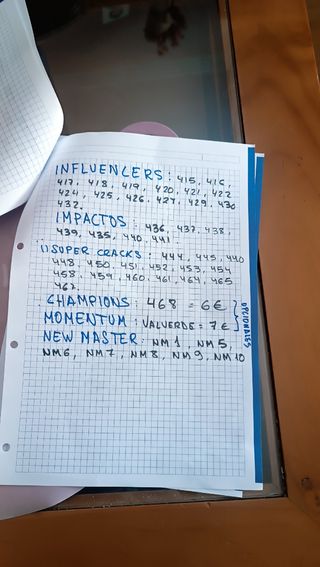 INFLUENCERS: 415, 416,
417, 418, 419, 420, 421, 422
424, 425, 426, 427, 429, 430
432.
IMPACTOS: 436, 437, 438,
439, 435, 440, 441
¡¡SUPER CRACKS: 444, 445, 440
448, 450, 451, 452, 453, 454
458, 459, 460, 461, 464, 465
467
CHAMPIONS: 468 = 6€
MOMENTUM: VALVERDE = 7€
OPCIONALES
NEW MASTER: NM1, NM5,
NM6, NM7, NM8, NM9, NM10